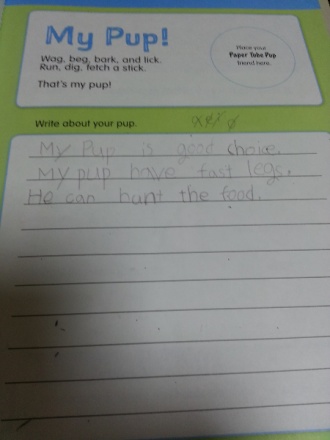 My Pup!
Wag, beg, bark, and lick.
Run, dig, fetch a stick.
That's my pup!
Place your
Paper Tube Pup
found here.
Write about your pup.
My Pup is good choice.
My pup have fast legs.
He can hunt the food.